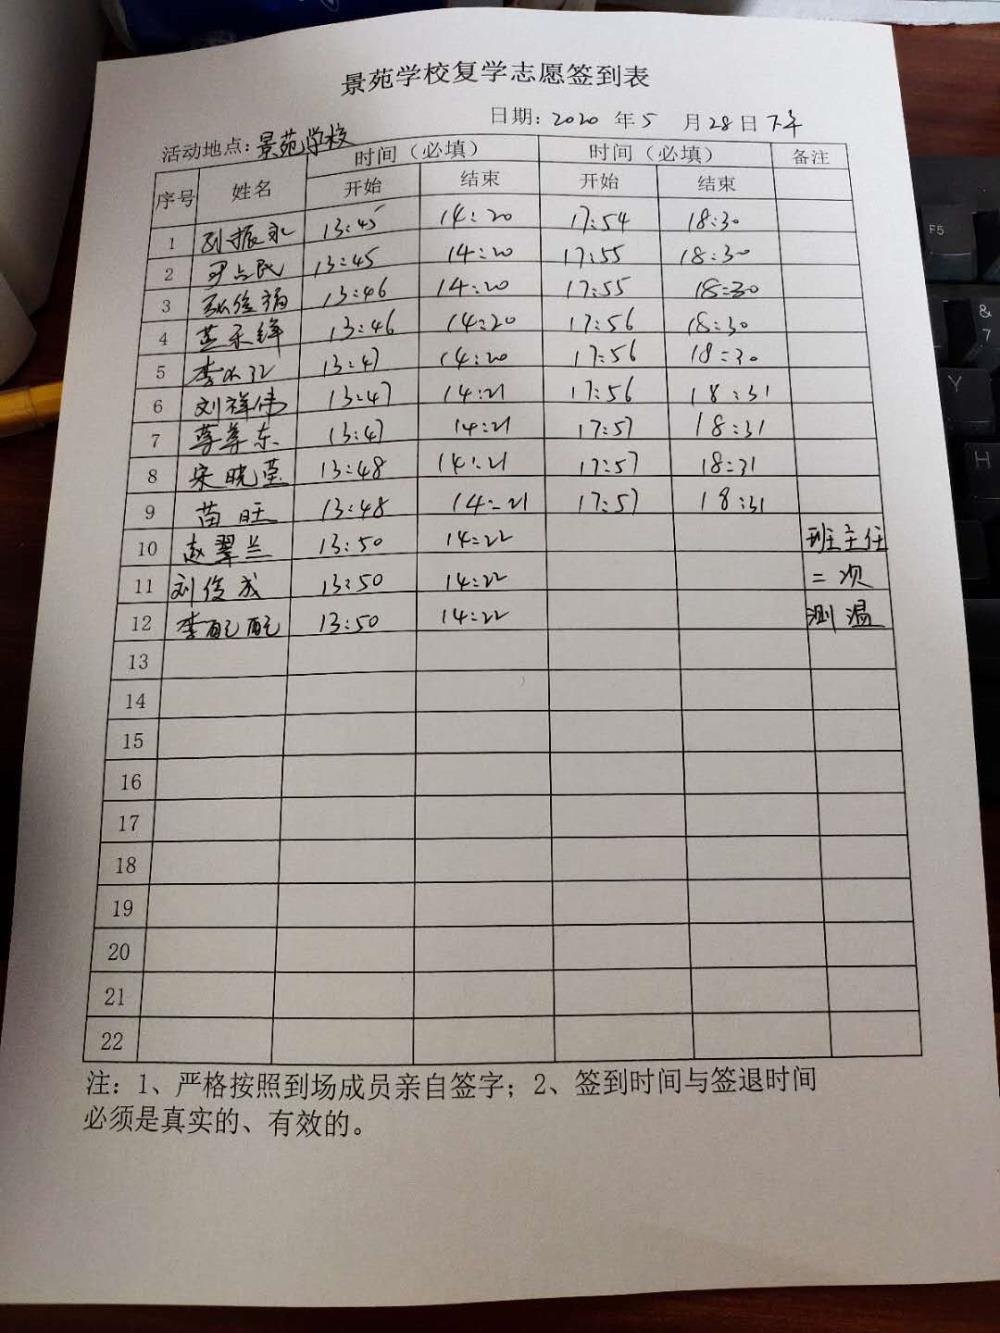 景苑学校复学志愿签到表
日期：2020 年 5 月 28 日 下午
活动地点：景苑学校
序号 姓名 时间（必填） 时间（必填） 备注
开始 结束 开始 结束
1 13:45 14:20 17:54 18:30
2 13:45 14:20 17:55 18:30
3 13:46 14:20 17:55 18:30
4 13:46 14:20 17:56 18:30
5 13:47 14:20 17:56 18:30
6 刘祥伟 13:47 14:21 17:56 18:31
7 13:47 14:21 17:57 18:31
8 宋晓莹 13:48 14:21 17:57 18:31
9 苗旺 13:48 14:21 17:57 18:31
10 赵翠兰 13:50 14:22 班主任
11 刘俊成 13:50 14:22 二次
12 李配配 13:50 14:22 测温
13
14
15
16
17
18
19
20
21
22
注：1、严格按照到场成员亲自签字；2、签到时间与签退时间
必须是真实的、有效的。
F5
&
7
Y
H